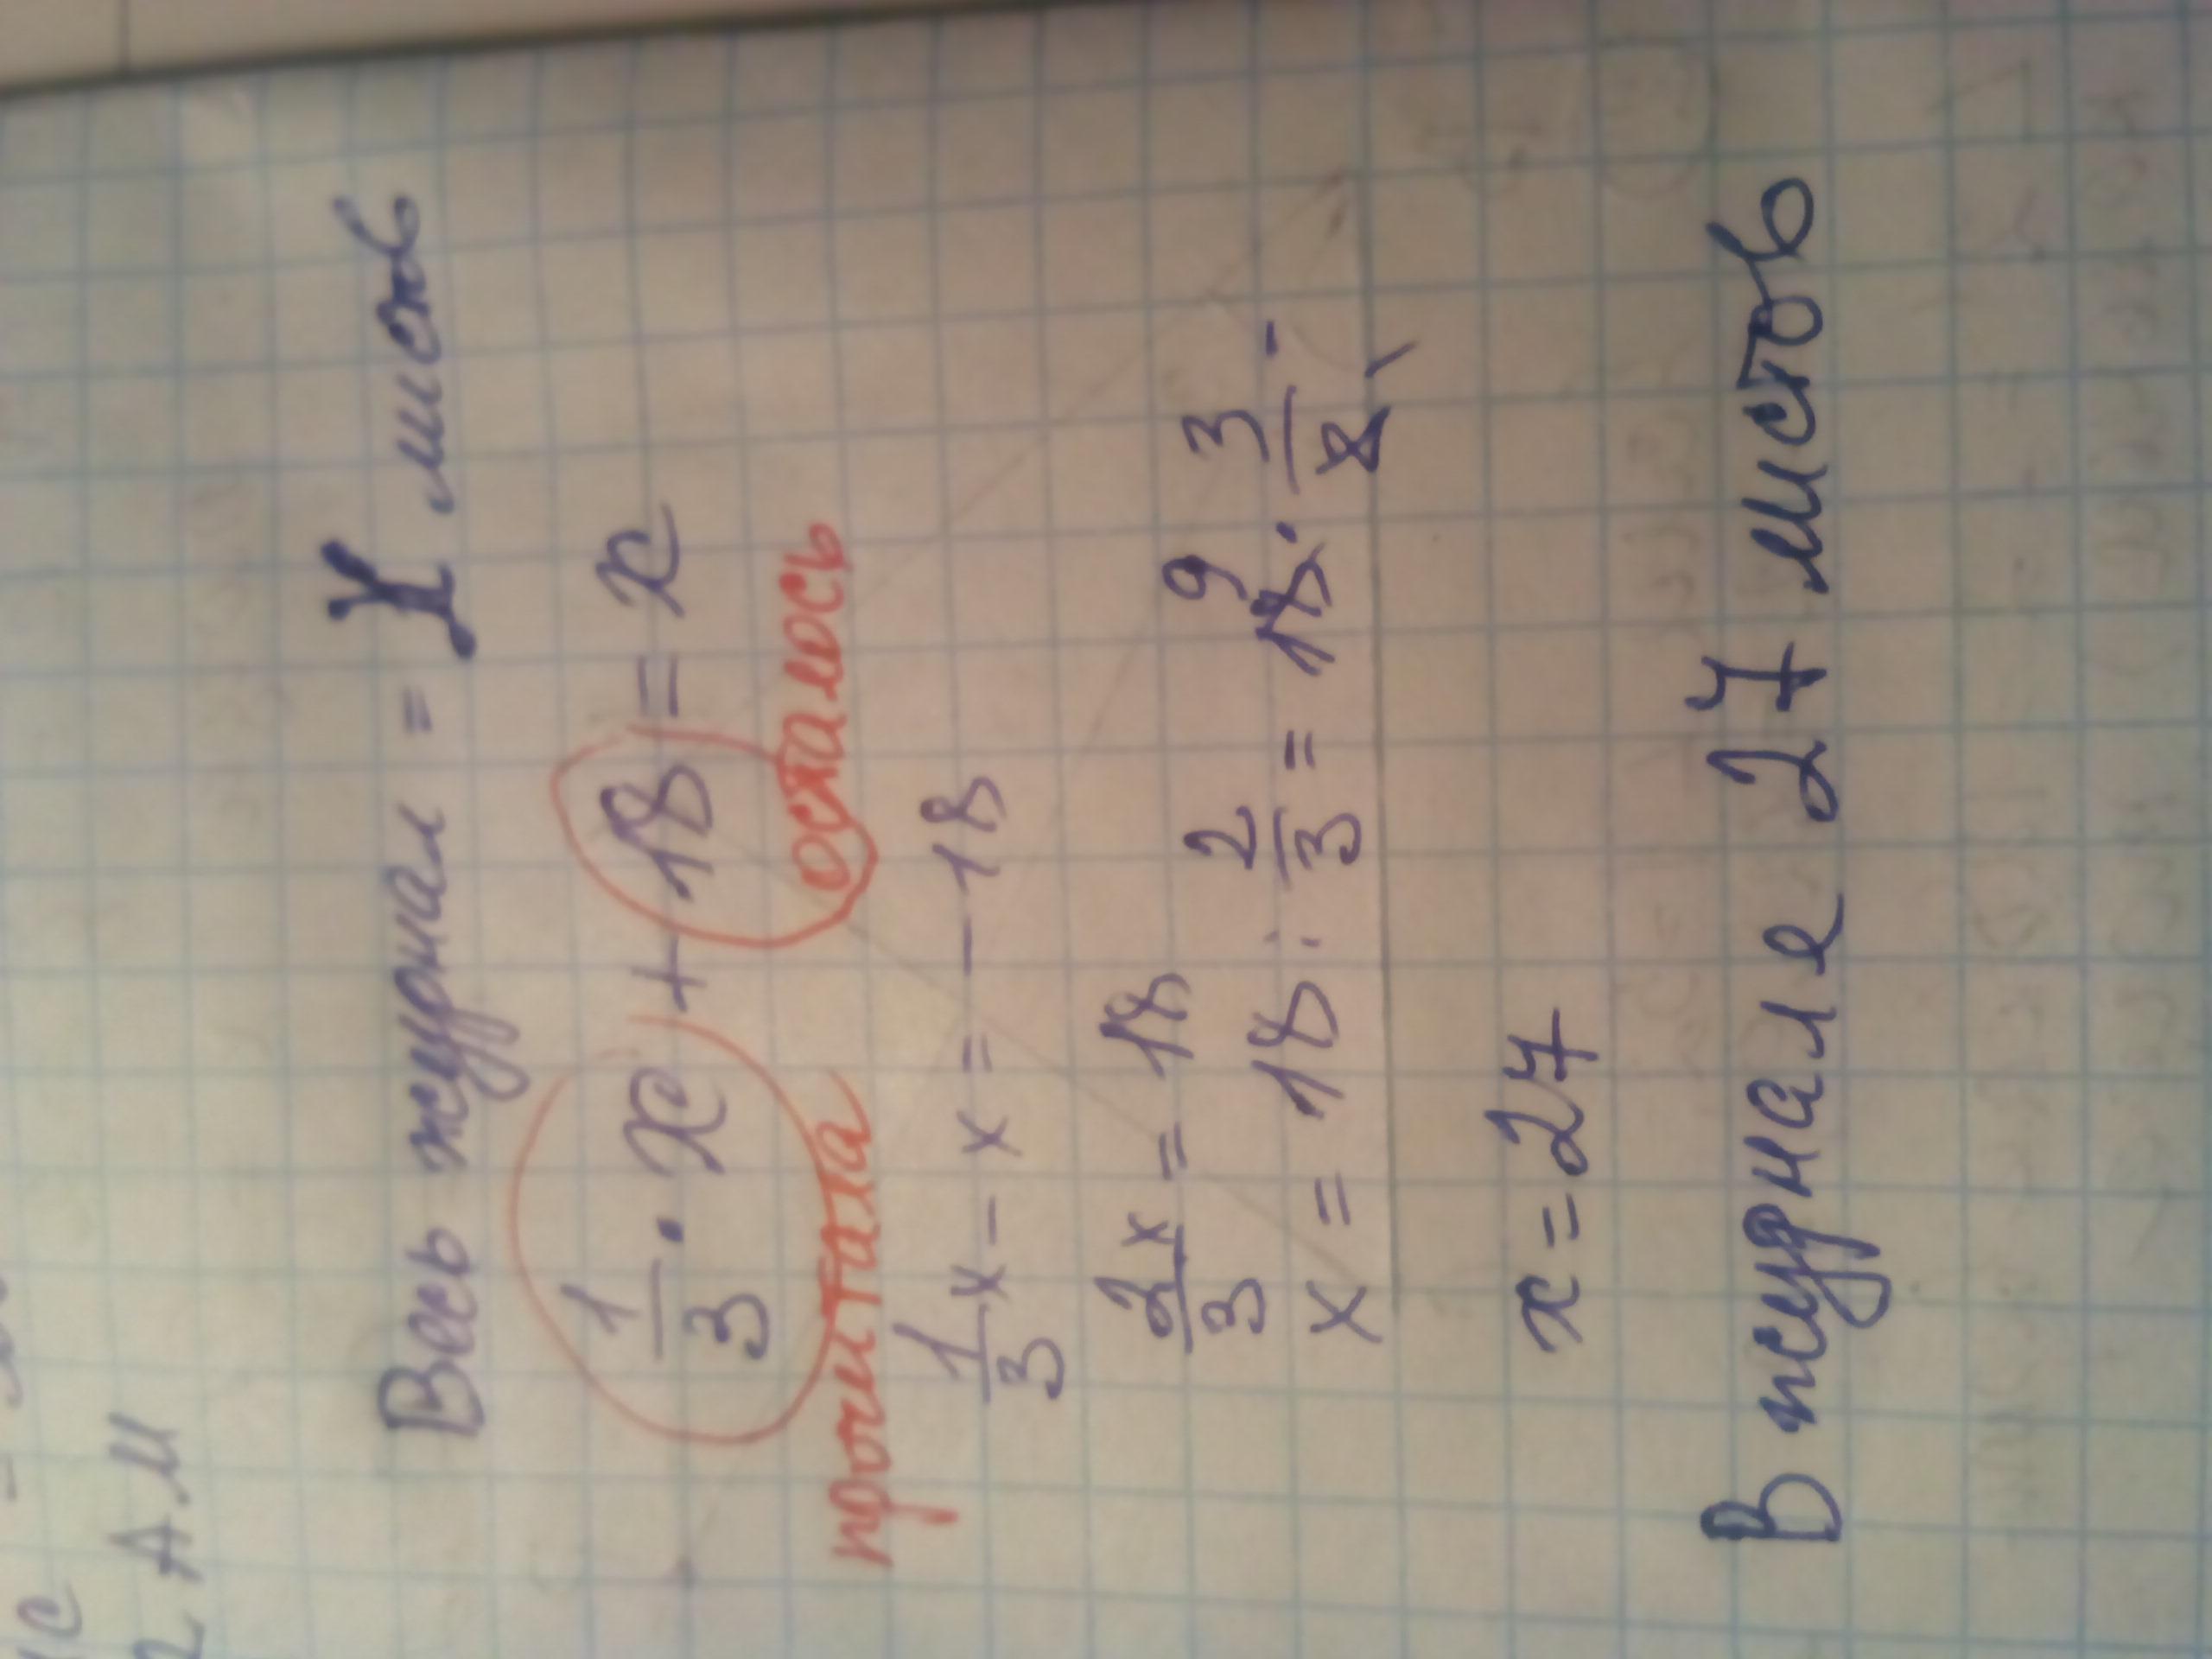 2 АМ
Весь журнал = X листов
1/3 · x + 18 = x
прочитала осталось
1/3 x - x = - 18
2/3 x = 18
x = 18 : 2/3 = 18 9 · 3/2
x = 27
В журнале 27 листов